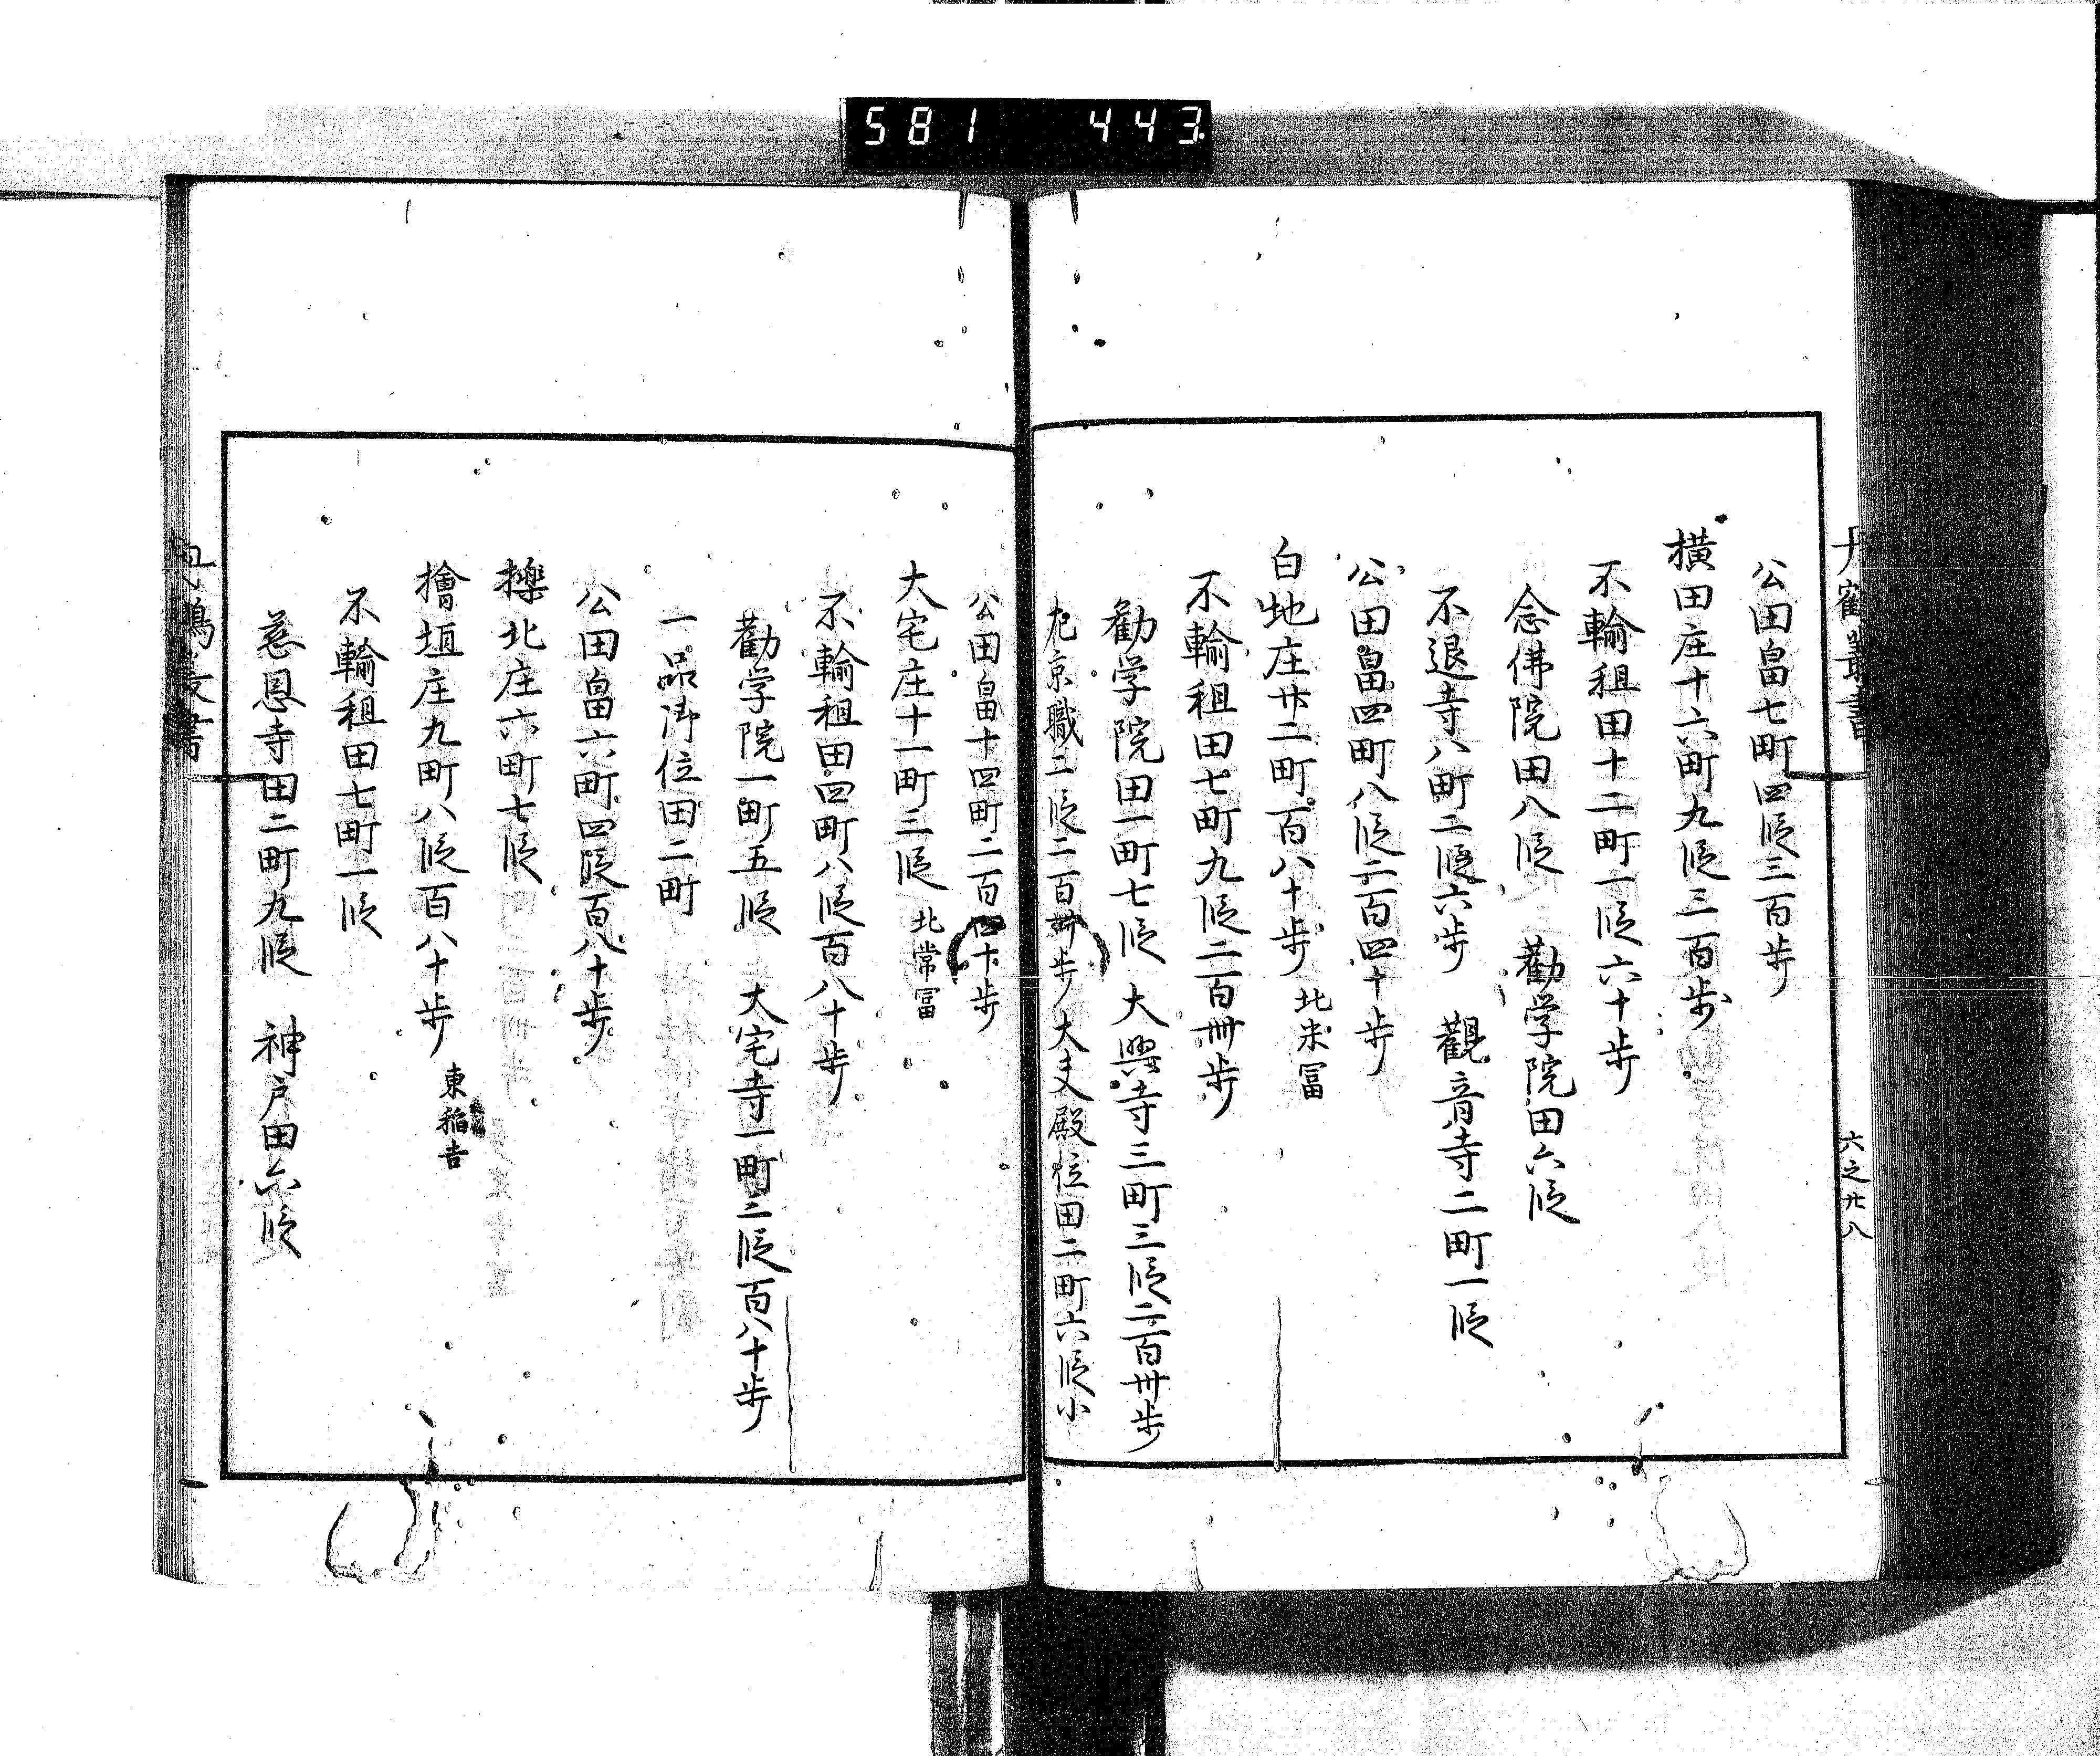 581 443
丹鶴叢書
六之廿八
公田畠七町四段三百歩
横田庄十六町九段三百歩
不輸租田十二町一段六十歩
念佛院田八段 勸学院田六段
不退寺八町二段六歩 觀音寺二町一段
公田畠四町八段二百四十歩
白地庄廿二町百八十歩 北米冨
不輸租田七町九段二百卅歩
勸学院田一町七段 大興寺三町三段二百卅歩
左京職二段二百卅歩 大夫殿位田二町六段小
公田畠十四町二百四十歩
大宅庄十一町三段 北常冨
不輸租田四町八段百八十歩
勸学院一町五段 大宅寺一町三段百八十歩
一品御位田二町
公田畠六町四段百八十歩
櫟北庄六町七段
檜垣庄九町八段百八十歩 東稲吉
不輸租田七町一段
慈恩寺田二町九段 神戸田六段
丹鶴叢書